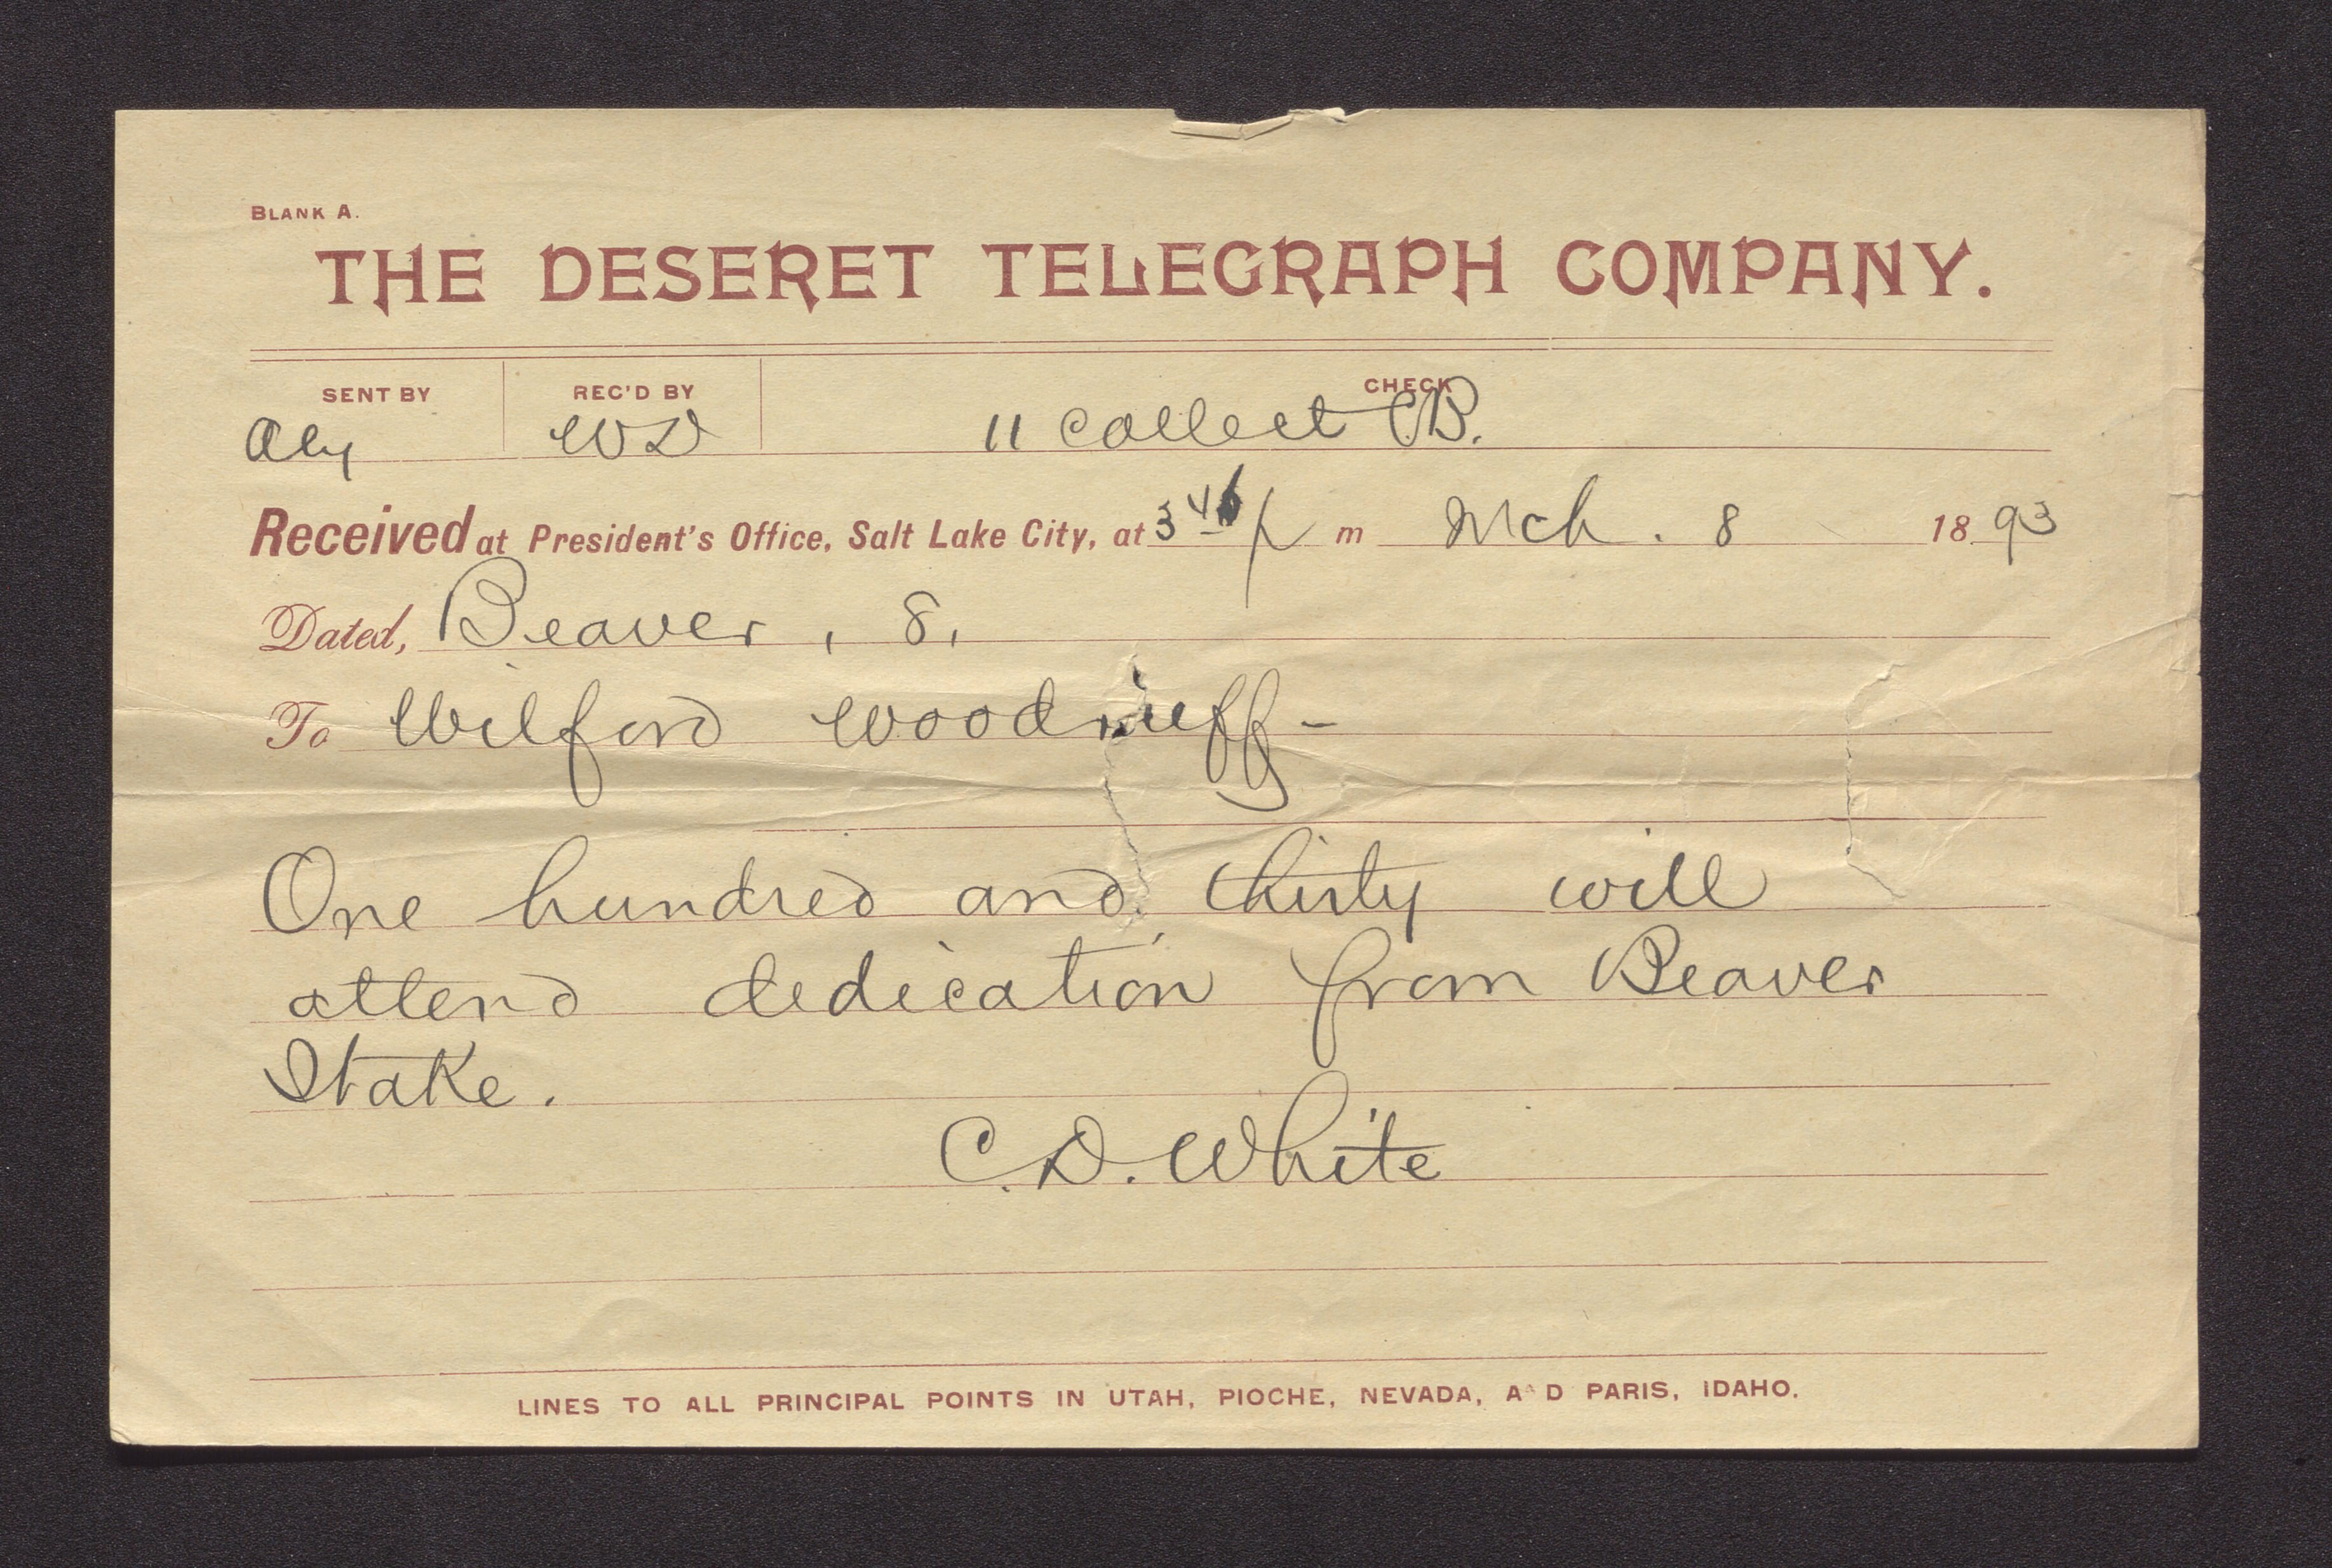 BLANK A.
THE DESERET TELEGRAPH COMPANY.
SENT BY REC'D BY CHECK
WD 11 Collect
Received at President's Office, Salt Lake City, at 3 p m Mch. 8 1893
Dated, Beaver, 8,
To Wilford Woodruff-
One hundred and thirty will
attend dedication from Beaver
Stake.
C. D. White
LINES TO ALL PRINCIPAL POINTS IN UTAH, PIOCHE, NEVADA, A D PARIS, IDAHO.